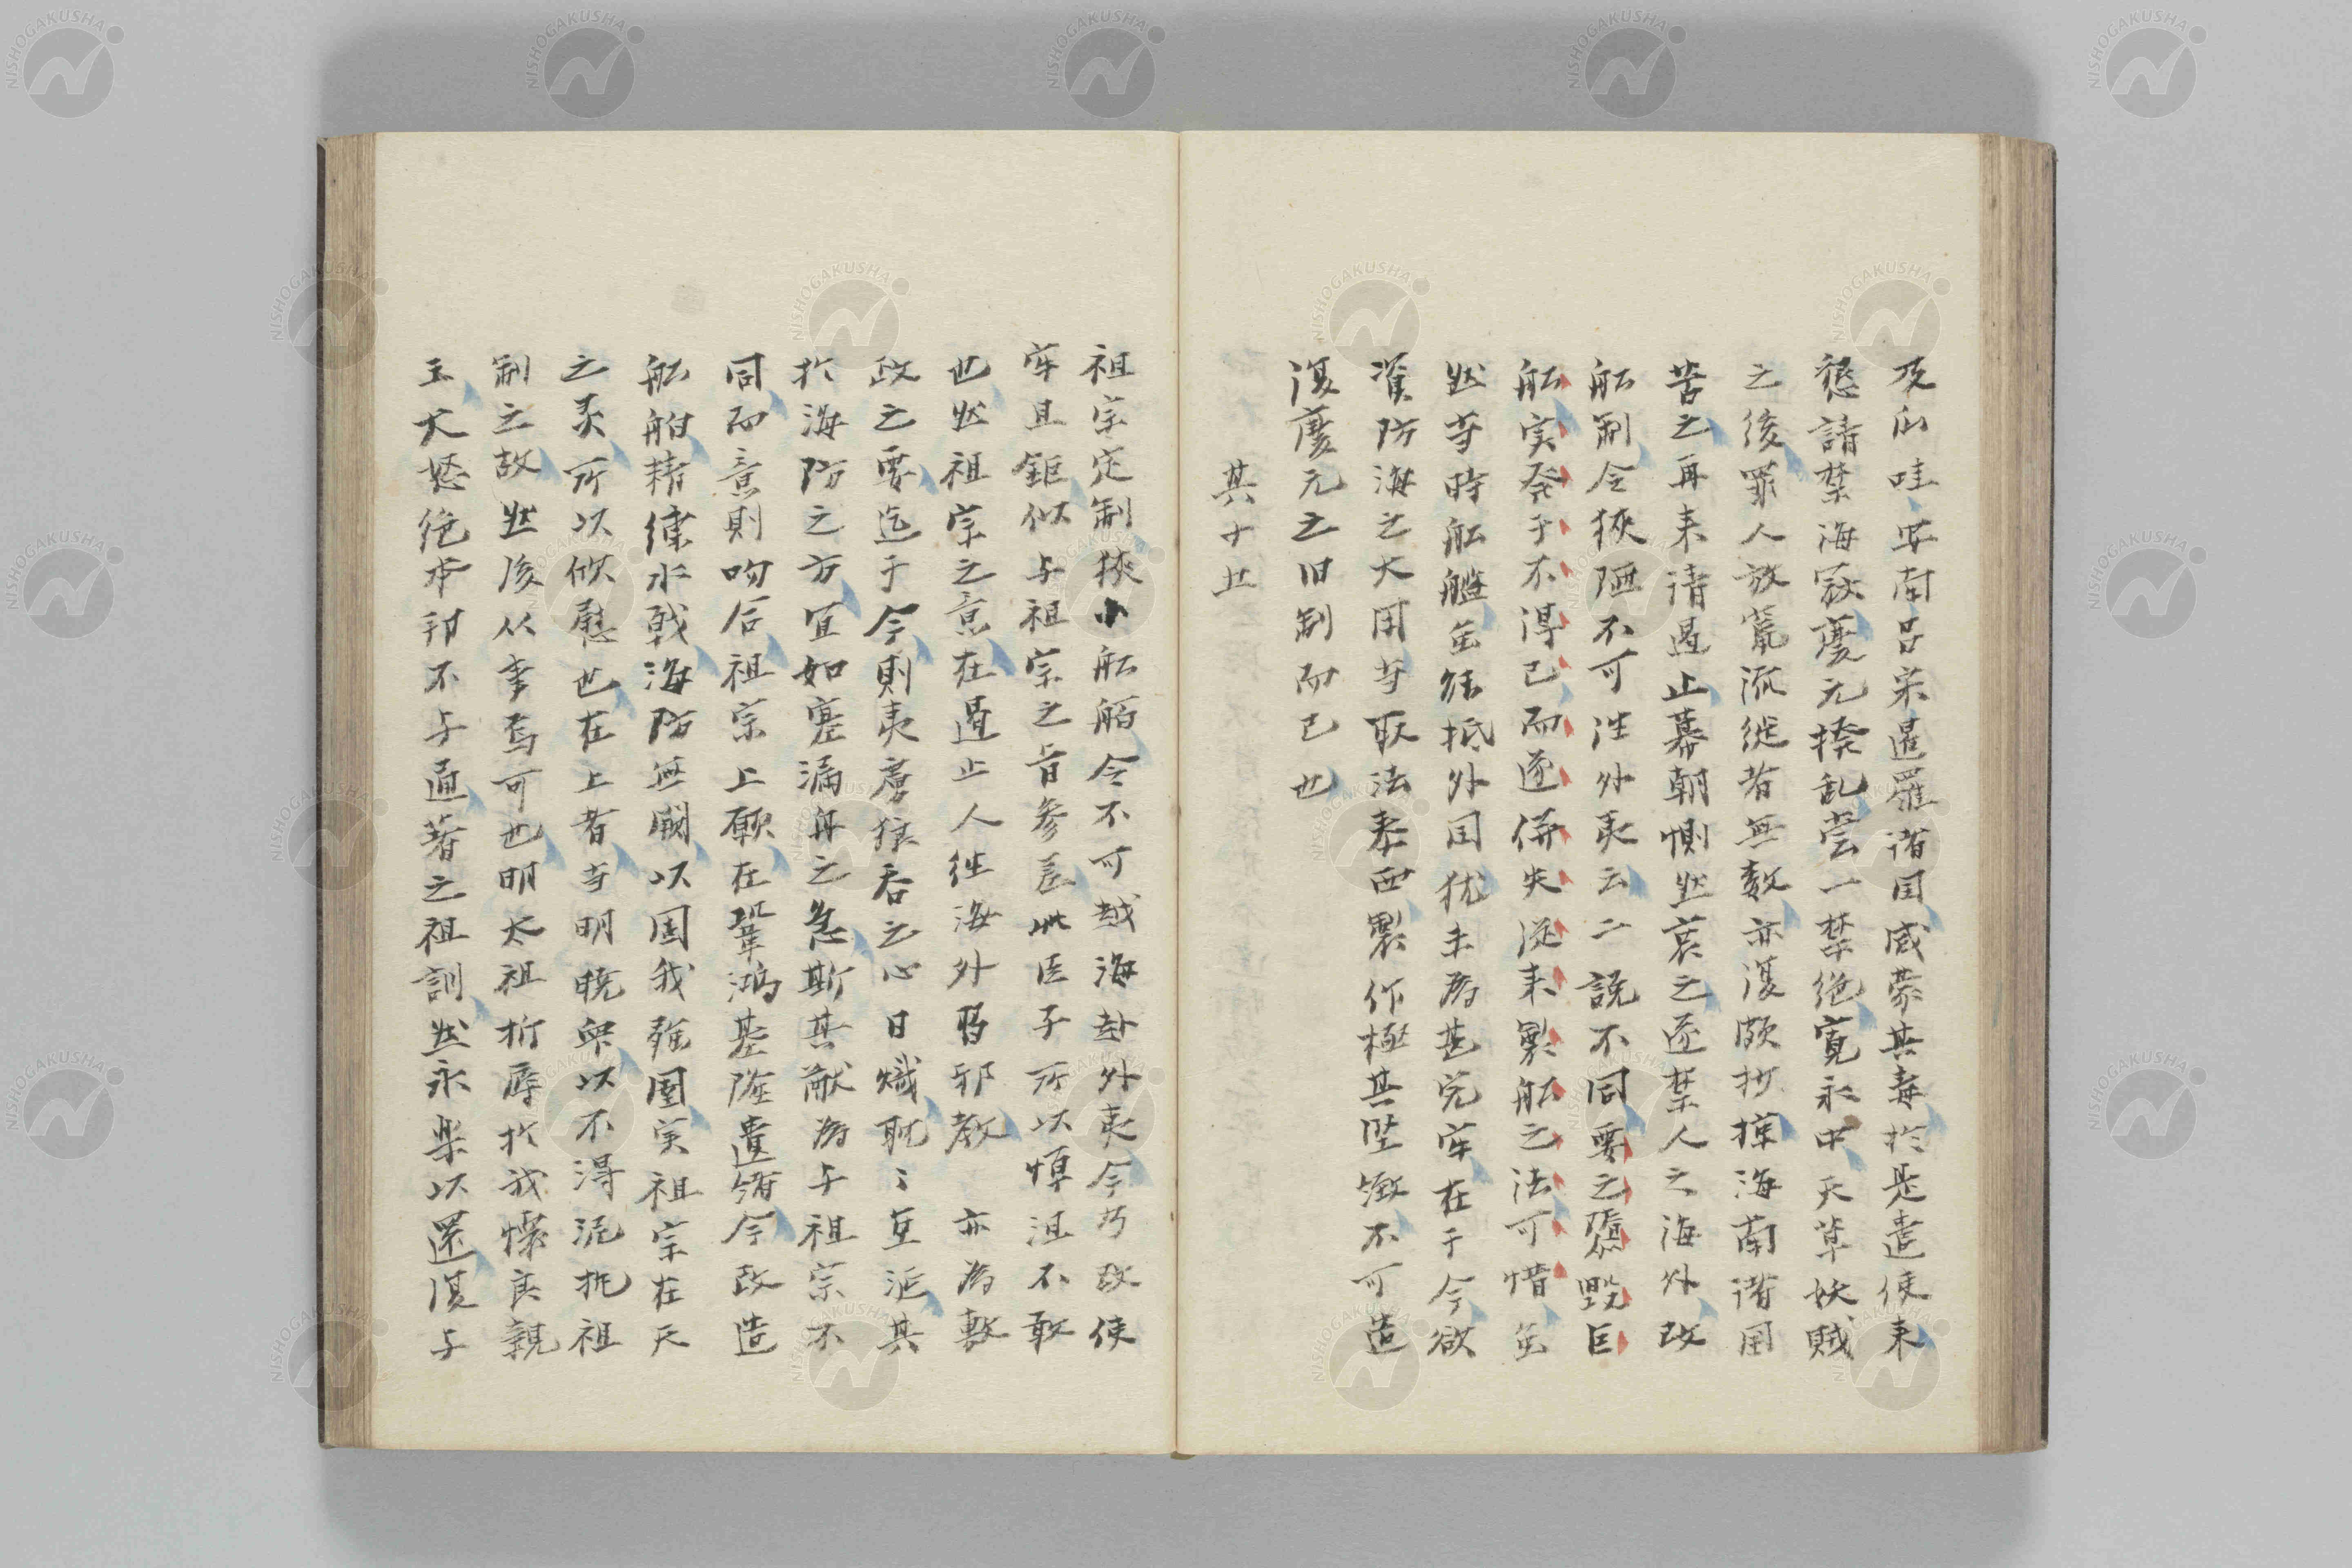 及爪哇安南呂宋暹羅諸国咸蒙其毒於是遣使来
懇請禁海寇慶元撥乱嘗一禁絶寛永中天草妖賊
之後罪人放竄流従者無数亦復頗抄掠海南諸国
苦之再来請遏止幕朝惻然哀之遂禁人之海外改
舩制令狭陋不可泩外夷云二説不同要之隳毀巨
舩実発于不得已而遂併失従来製舩之法可惜矣
然寺時舩艦矣往抵外国犹未為甚完牢在于今欲
資防海之大用寺取法泰西製作極其堅緻不可造
復慶元之旧制而已也
其十五
祖宗定制狭小舩舶令不可越海赴外夷今乃改使
牢且鉅似与祖宗之旨参差此臣子所以憚沮不敢
也然祖宗之意在遏止人往海外習邪教 亦為敷
政之要迄于今則夷虜狼呑之心日熾耽〻互涎其
於海防之方宜如塞漏舟之急斯其猷為与祖宗不
同而意則吻合祖宗上願在鞏鴻基隆遺緒今改造
舩舶精練水戦海防無闕以固我強圉実祖宗在天
之灵所以欣慰也在上者寺明暁衆以不得泥扺祖
制之故然後从事焉可也明太祖折辱於我懐良親
王大怒絶本邦不与通著之祖訓然永楽以還復与